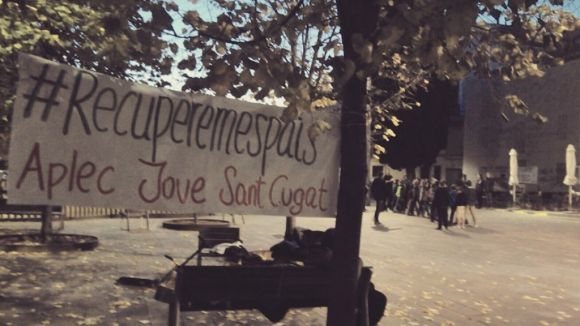 #Recuperemespais
Aplec Jove Sant Cugat